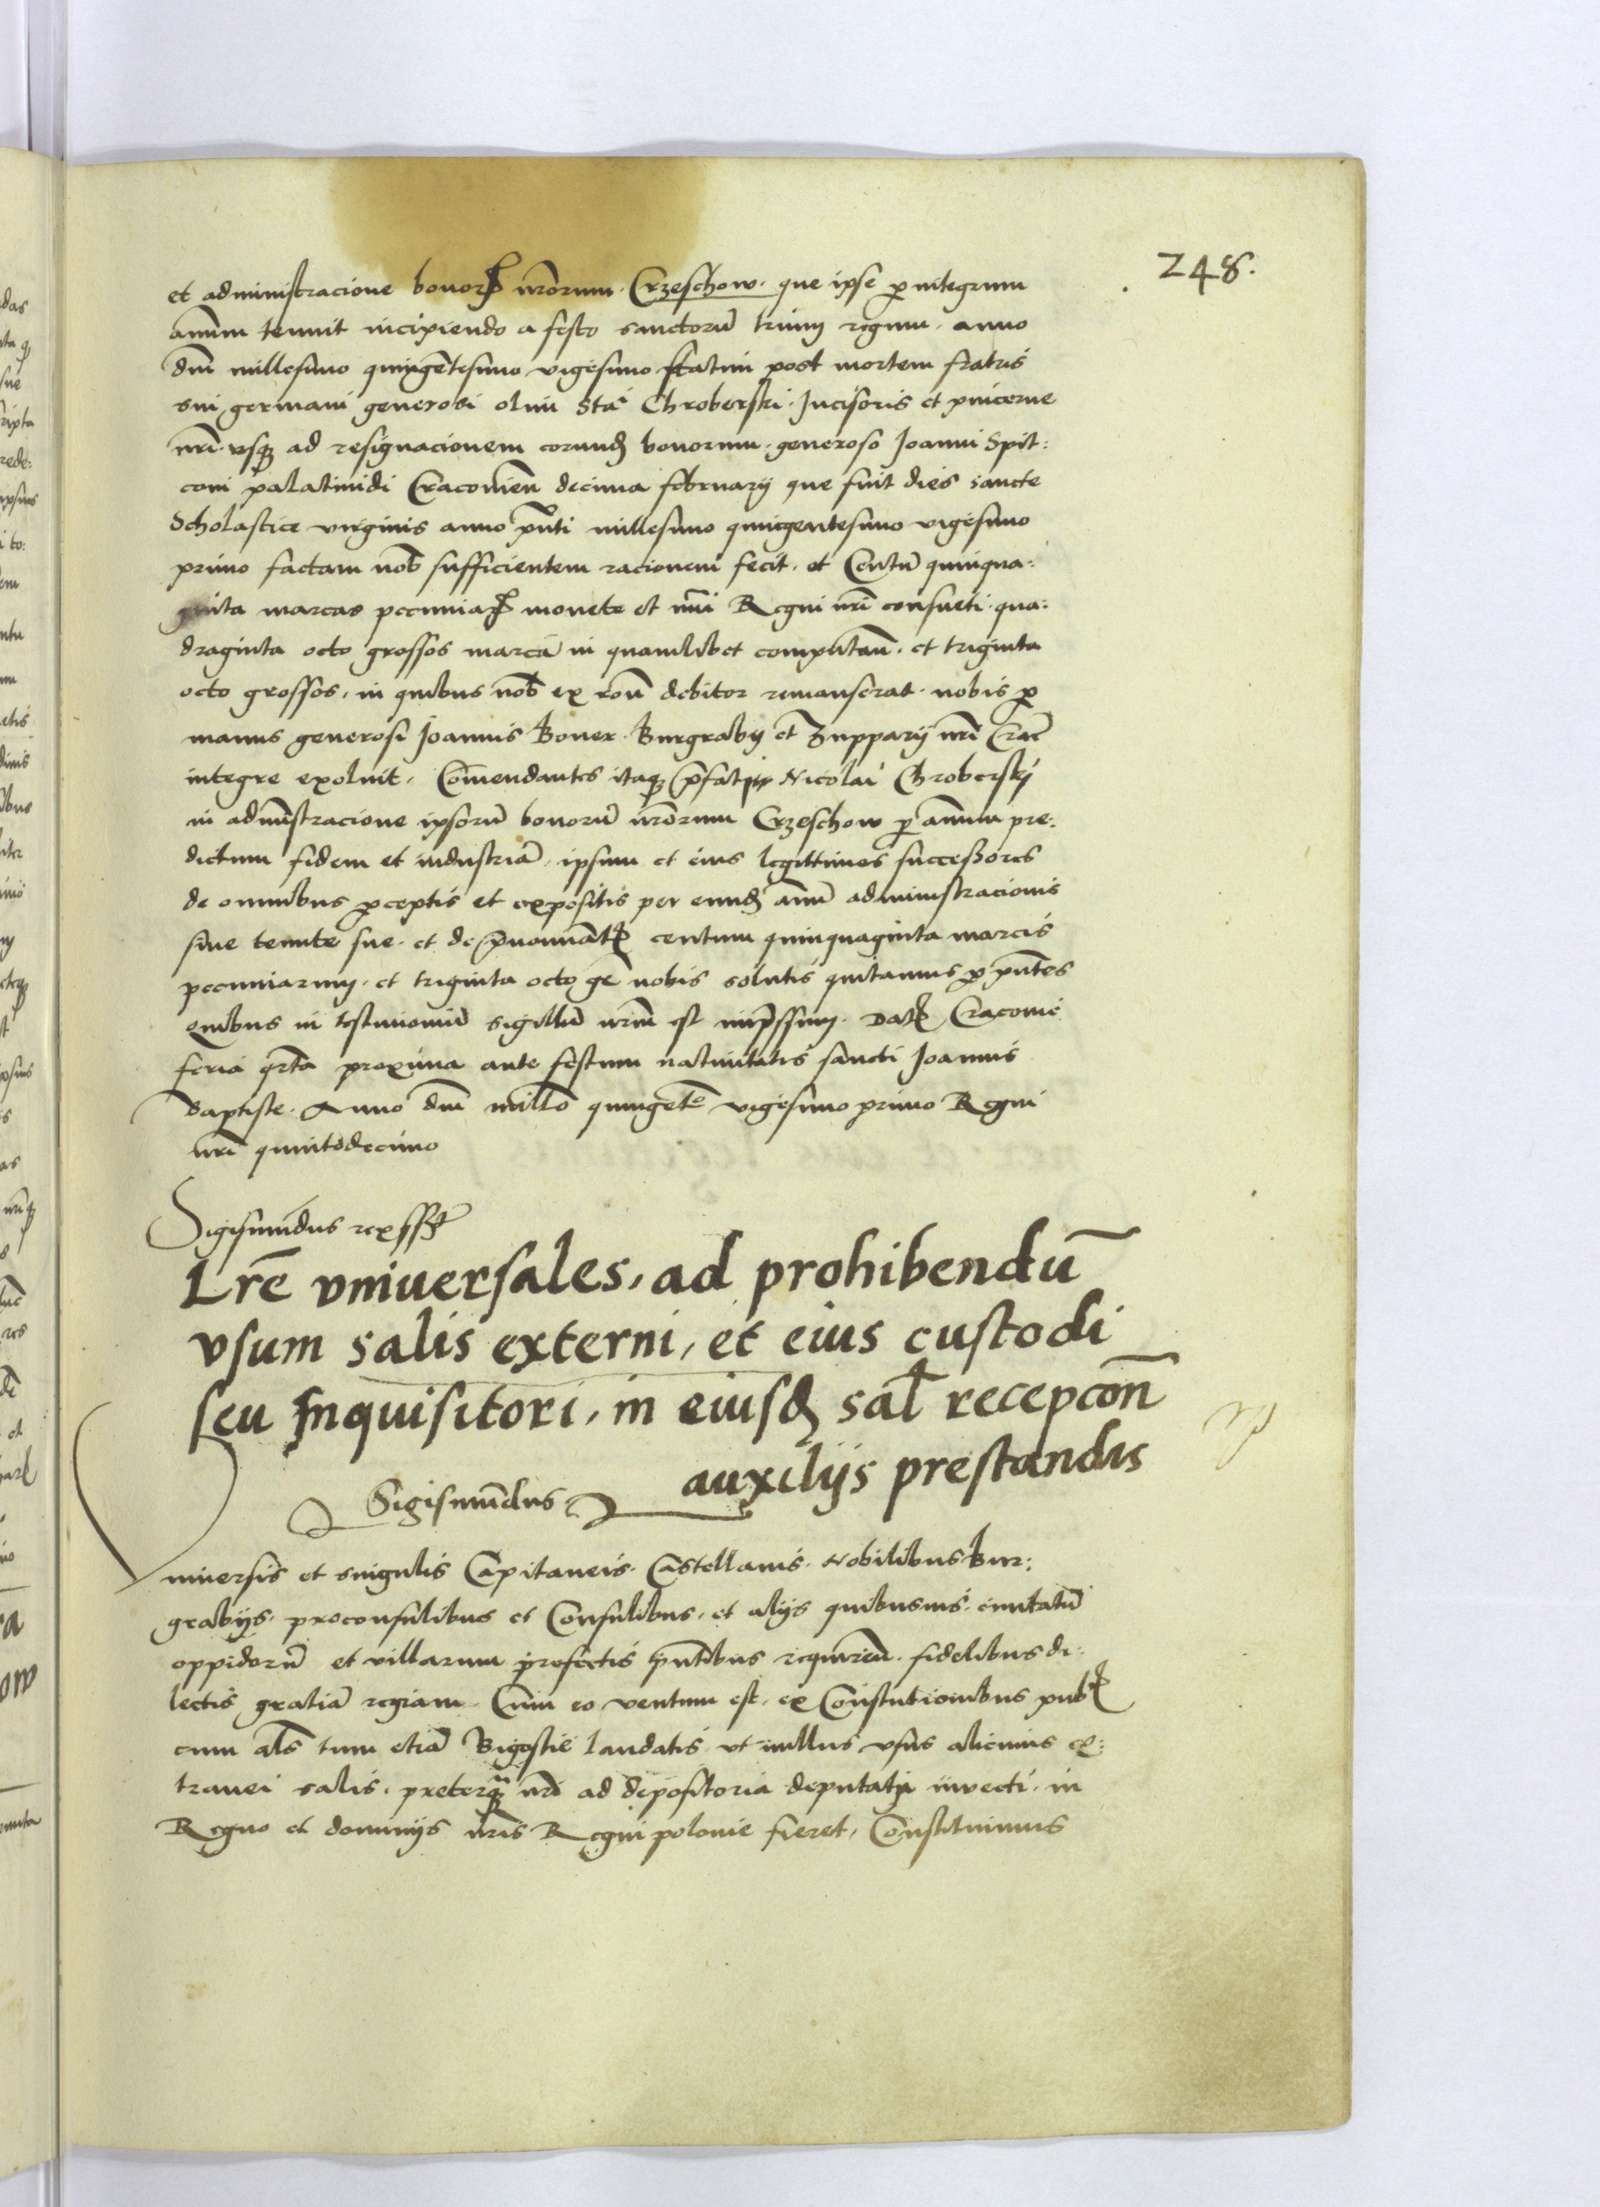 248.
et administracione bonoꝝ nr̄orum Crzeschow que ipse ꝑ integrum
annum tenuit incipiendo a festo sanctorū trium regum anno
dn̄i millesimo quingētesimo vigesimo statim post mortem fratris
sui germani generosi olim Sta: Chroberski Incisoris et pincerne
nr̄i vsqꝫ ad resignacionem eorundꝫ bonorum generoso Joanni Spit:
coni palatinidi Cracouien̄ decima februarij que fuit dies sancte
Scholastice virginis anno pn̄ti millesimo quingentesimo vigesimo
primo factam nob̄ sufficientem racionem fecit et Centū quinqua:
ginta marcas pecuniaꝝ monete et nūi Regni nr̄i consueti qua:
draginta octo grossos marcā in quamlibet computan̄ et triginta
octo grossos, in quibus nob̄ ex rōn̄ debitor remanserat nobis ꝑ
manus generosi Joannis Boner Burgrabij et Zupparij nr̄i Crac̄
integre exoluit, Cōmendantes itaqꝫ p̄fati Nicolai Chroberskij
in admīstracione ipsorū bonorū nr̄orum Crzeschow ꝑ annum pre:
dictum fidem et industriā, ipsum et eius legittimos successores
de omnibus ꝑceptis et expositis per eundꝫ annū administracionis
siue tenute sue et de p̄nominatꝭ centum quinquaginta marcis
pecuniarum, et triginta octo gr̄ nobis solutis quitamus ꝑ pn̄tes
Quibus in testimoniū sigillū nr̄um est imp̄ssum. Datꝭ Cracouie
feria qrta proxima ante festum natiuitatis sancti Joannis
Baptiste. Anno dn̄i millo quingētē vigesimo primo Regni
nr̄i quintodecimo
Sigismūdus rex sst
Lr̄e vniuersales, ad prohibendū
vsum salis externi, et eius custodi
seu Inquisitori, in eiusdꝫ sal recepcōn̄
auxilijs prestandis
Sigismūdus
Vniuersis et singulis Capitaneis Castellanis Nobilibus Bur:
grabijs, proconsulibus et Consulibus, et alijs quibusuis, ciuitatū
oppidorū et villarum prefectis pn̄tibus requiren̄ fidelibus di:
lectis gratiā regiam. Cum eo ventum est, ex Constitutionibus pubꝭ
cum als̄ tum etiā Bigostie laudatis vt nullus vsus alicuius ex:
tranei salis, preterqꝫ nr̄i ad depositoria deputata inuecti, in
Regno et dominijs nr̄is Regni polonie fieret, Constituimus